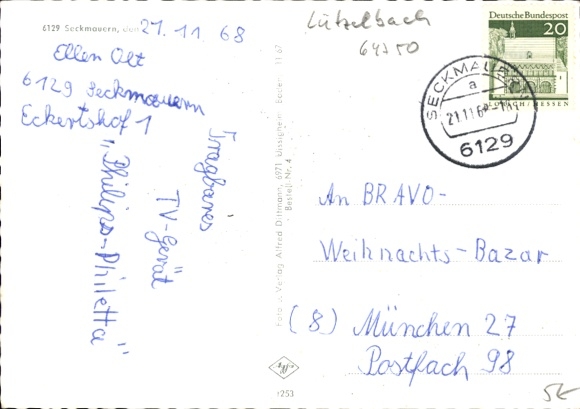 6129 Seckmauern, den 21.11.68
Ellen Olt
6129 Seckmauern
Eckertshof 1
Tragbares
TV-Gerät
"Philips-Philetta"
Foto u. Verlag Alfred Duttmann, 6971 Uissigheim
Bestell Nr. 4
11.67
Lützelbach
64750
Deutsche Bundespost
20
LORSCH/HESSEN
SECKMAUERN
a
21.11.68
6129
An BRAVO-
Weihnachts-Bazar
(8) München 27
Postfach 98
1253
5€